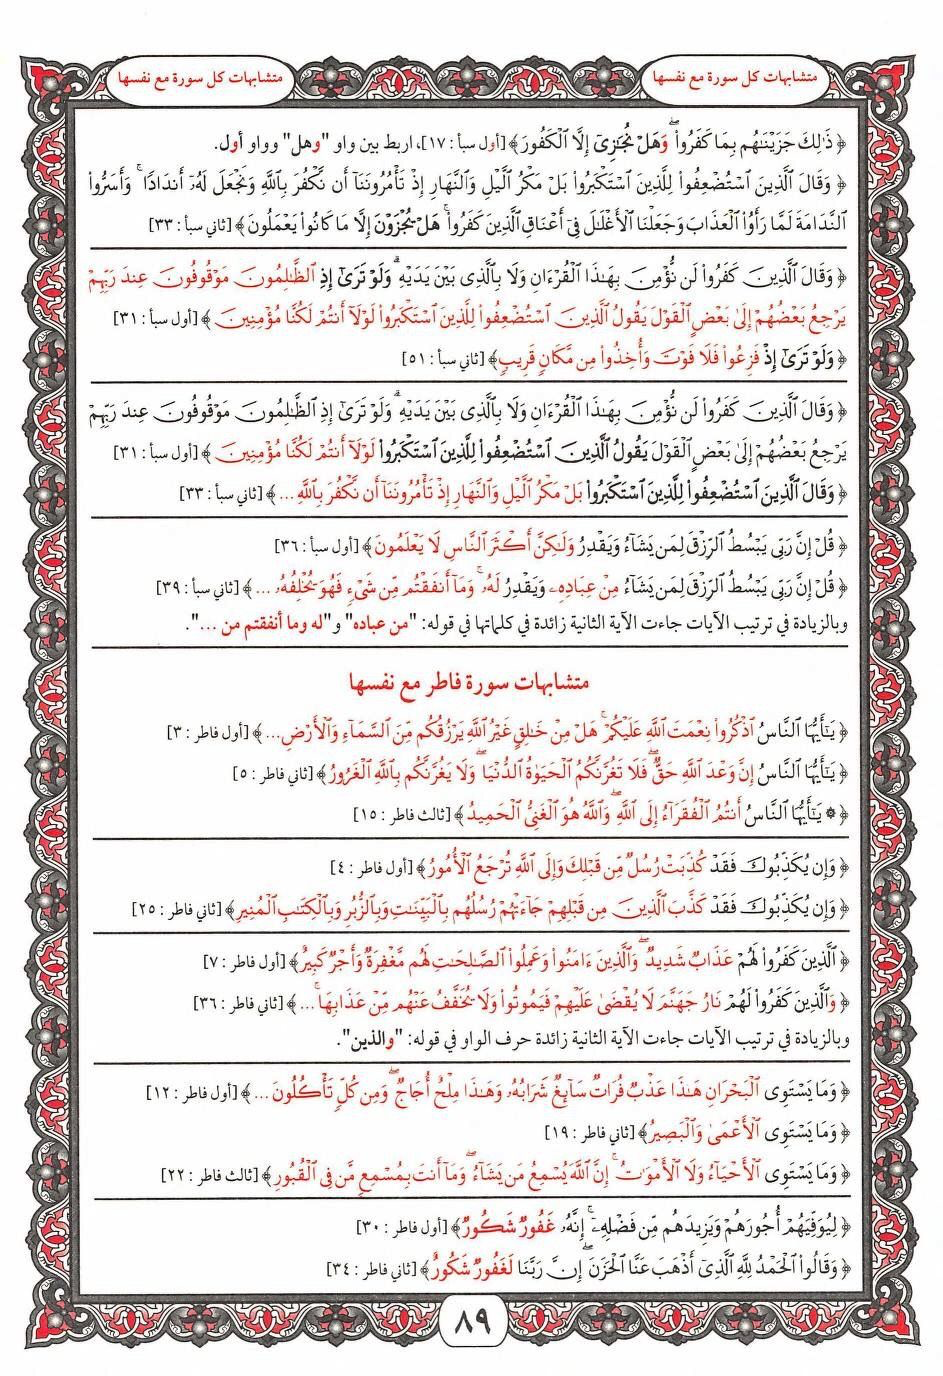 متشابهات كل سورة مع نفسها
متشابهات كل سورة مع نفسها
﴿ ذَٰلِكَ جَزَيْنَٰهُم بِمَا كَفَرُوا۟ ۖ وَهَلْ نُجَٰزِىٓ إِلَّا ٱلْكَفُورَ ﴾ [أول سبأ : ١٧]، اربط بين واو "وهل" وواو أول.
﴿ وَقَالَ ٱلَّذِينَ ٱسْتُضْعِفُوا۟ لِلَّذِينَ ٱسْتَكْبَرُوا۟ بَلْ مَكْرُ ٱلَّيْلِ وَٱلنَّهَارِ إِذْ تَأْمُرُونَنَآ أَن نَّكْفُرَ بِٱللَّهِ وَنَجْعَلَ لَهُۥٓ أَندَادًا ۚ وَأَسَرُّوا۟
ٱلنَّدَامَةَ لَمَّا رَأَوُا۟ ٱلْعَذَابَ وَجَعَلْنَا ٱلْأَغْلَٰلَ فِىٓ أَعْنَاقِ ٱلَّذِينَ كَفَرُوا۟ ۚ هَلْ يُجْزَوْنَ إِلَّا مَا كَانُوا۟ يَعْمَلُونَ ﴾ [ثاني سبأ : ٣٣]
﴿ وَقَالَ ٱلَّذِينَ كَفَرُوا۟ لَن نُّؤْمِنَ بِهَٰذَا ٱلْقُرْءَانِ وَلَا بِٱلَّذِى بَيْنَ يَدَيْهِ ۗ وَلَوْ تَرَىٰٓ إِذِ ٱلظَّٰلِمُونَ مَوْقُوفُونَ عِندَ رَبِّهِمْ
يَرْجِعُ بَعْضُهُمْ إِلَىٰ بَعْضٍ ٱلْقَوْلَ يَقُولُ ٱلَّذِينَ ٱسْتُضْعِفُوا۟ لِلَّذِينَ ٱسْتَكْبَرُوا۟ لَوْلَآ أَنتُمْ لَكُنَّا مُؤْمِنِينَ ﴾ [أول سبأ : ٣١]
﴿ وَلَوْ تَرَىٰٓ إِذْ فَزِعُوا۟ فَلَا فَوْتَ وَأُخِذُوا۟ مِن مَّكَانٍ قَرِيبٍ ﴾ [ثاني سبأ : ٥١]
﴿ وَقَالَ ٱلَّذِينَ كَفَرُوا۟ لَن نُّؤْمِنَ بِهَٰذَا ٱلْقُرْءَانِ وَلَا بِٱلَّذِى بَيْنَ يَدَيْهِ ۗ وَلَوْ تَرَىٰٓ إِذِ ٱلظَّٰلِمُونَ مَوْقُوفُونَ عِندَ رَبِّهِمْ
يَرْجِعُ بَعْضُهُمْ إِلَىٰ بَعْضٍ ٱلْقَوْلَ يَقُولُ ٱلَّذِينَ ٱسْتُضْعِفُوا۟ لِلَّذِينَ ٱسْتَكْبَرُوا۟ لَوْلَآ أَنتُمْ لَكُنَّا مُؤْمِنِينَ ﴾ [أول سبأ : ٣١]
﴿ وَقَالَ ٱلَّذِينَ ٱسْتُضْعِفُوا۟ لِلَّذِينَ ٱسْتَكْبَرُوا۟ بَلْ مَكْرُ ٱلَّيْلِ وَٱلنَّهَارِ إِذْ تَأْمُرُونَنَآ أَن نَّكْفُرَ بِٱللَّهِ ... ﴾ [ثاني سبأ : ٣٣]
﴿ قُلْ إِنَّ رَبِّى يَبْسُطُ ٱلرِّزْقَ لِمَن يَشَآءُ وَيَقْدِرُ وَلَٰكِنَّ أَكْثَرَ ٱلنَّاسِ لَا يَعْلَمُونَ ﴾ [أول سبأ : ٣٦]
﴿ قُلْ إِنَّ رَبِّى يَبْسُطُ ٱلرِّزْقَ لِمَن يَشَآءُ مِنْ عِبَادِهِۦ وَيَقْدِرُ لَهُۥ ۚ وَمَآ أَنفَقْتُم مِّن شَىْءٍ فَهُوَ يُخْلِفُهُۥ ... ﴾ [ثاني سبأ : ٣٩]
وبالزيادة في ترتيب الآيات جاءت الآية الثانية زائدة في كلماتها في قوله: "من عباده" و"له وما أنفقتم من ...".
متشابهات سورة فاطر مع نفسها
﴿ يَٰٓأَيُّهَا ٱلنَّاسُ ٱذْكُرُوا۟ نِعْمَتَ ٱللَّهِ عَلَيْكُمْ ۚ هَلْ مِنْ خَٰلِقٍ غَيْرُ ٱللَّهِ يَرْزُقُكُم مِّنَ ٱلسَّمَآءِ وَٱلْأَرْضِ ... ﴾ [أول فاطر : ٣]
﴿ يَٰٓأَيُّهَا ٱلنَّاسُ إِنَّ وَعْدَ ٱللَّهِ حَقٌّ ۖ فَلَا تَغُرَّنَّكُمُ ٱلْحَيَوٰةُ ٱلدُّنْيَا ۖ وَلَا يَغُرَّنَّكُم بِٱللَّهِ ٱلْغَرُورُ ﴾ [ثاني فاطر : ٥]
﴿ ۞ يَٰٓأَيُّهَا ٱلنَّاسُ أَنتُمُ ٱلْفُقَرَآءُ إِلَى ٱللَّهِ ۖ وَٱللَّهُ هُوَ ٱلْغَنِىُّ ٱلْحَمِيدُ ﴾ [ثالث فاطر : ١٥]
﴿ وَإِن يُكَذِّبُوكَ فَقَدْ كُذِّبَتْ رُسُلٌ مِّن قَبْلِكَ ۚ وَإِلَى ٱللَّهِ تُرْجَعُ ٱلْأُمُورُ ﴾ [أول فاطر : ٤]
﴿ وَإِن يُكَذِّبُوكَ فَقَدْ كَذَّبَ ٱلَّذِينَ مِن قَبْلِهِمْ جَآءَتْهُمْ رُسُلُهُم بِٱلْبَيِّنَٰتِ وَبِٱلزُّبُرِ وَبِٱلْكِتَٰبِ ٱلْمُنِيرِ ﴾ [ثاني فاطر : ٢٥]
﴿ ٱلَّذِينَ كَفَرُوا۟ لَهُمْ عَذَابٌ شَدِيدٌ ۖ وَٱلَّذِينَ ءَامَنُوا۟ وَعَمِلُوا۟ ٱلصَّٰلِحَٰتِ لَهُم مَّغْفِرَةٌ وَأَجْرٌ كَبِيرٌ ﴾ [أول فاطر : ٧]
﴿ وَٱلَّذِينَ كَفَرُوا۟ لَهُمْ نَارُ جَهَنَّمَ لَا يُقْضَىٰ عَلَيْهِمْ فَيَمُوتُوا۟ وَلَا يُخَفَّفُ عَنْهُم مِّنْ عَذَابِهَا ۚ ... ﴾ [ثاني فاطر : ٣٦]
وبالزيادة في ترتيب الآيات جاءت الآية الثانية زائدة حرف الواو في قوله: "والذين".
﴿ وَمَا يَسْتَوِى ٱلْبَحْرَانِ هَٰذَا عَذْبٌ فُرَاتٌ سَآئِغٌ شَرَابُهُۥ وَهَٰذَا مِلْحٌ أُجَاجٌ ۖ وَمِن كُلٍّ تَأْكُلُونَ ... ﴾ [أول فاطر : ١٢]
﴿ وَمَا يَسْتَوِى ٱلْأَعْمَىٰ وَٱلْبَصِيرُ ﴾ [ثاني فاطر : ١٩]
﴿ وَمَا يَسْتَوِى ٱلْأَحْيَآءُ وَلَا ٱلْأَمْوَٰتُ ۚ إِنَّ ٱللَّهَ يُسْمِعُ مَن يَشَآءُ ۖ وَمَآ أَنتَ بِمُسْمِعٍ مَّن فِى ٱلْقُبُورِ ﴾ [ثالث فاطر : ٢٢]
﴿ لِيُوَفِّيَهُمْ أُجُورَهُمْ وَيَزِيدَهُم مِّن فَضْلِهِۦٓ ۚ إِنَّهُۥ غَفُورٌ شَكُورٌ ﴾ [أول فاطر : ٣٠]
﴿ وَقَالُوا۟ ٱلْحَمْدُ لِلَّهِ ٱلَّذِىٓ أَذْهَبَ عَنَّا ٱلْحَزَنَ ۖ إِنَّ رَبَّنَا لَغَفُورٌ شَكُورٌ ﴾ [ثاني فاطر : ٣٤]
٨٩